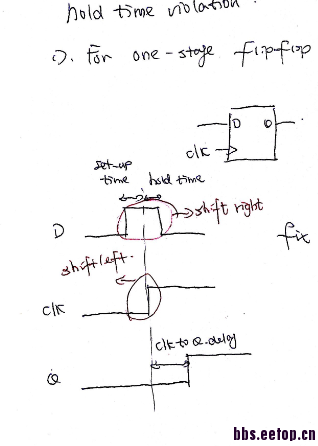 hold time violation.
1). For one-stage flip-flop
D Q
clk
set-up
time hold time
shift right
D
fix
shift left.
clk
clk to Q. delay
Q
bbs.eetop.cn